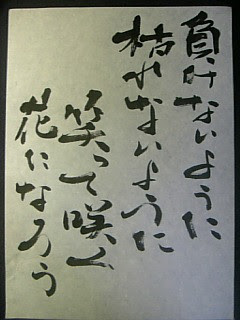 負けないように
枯れないように
笑って咲く
花になろう